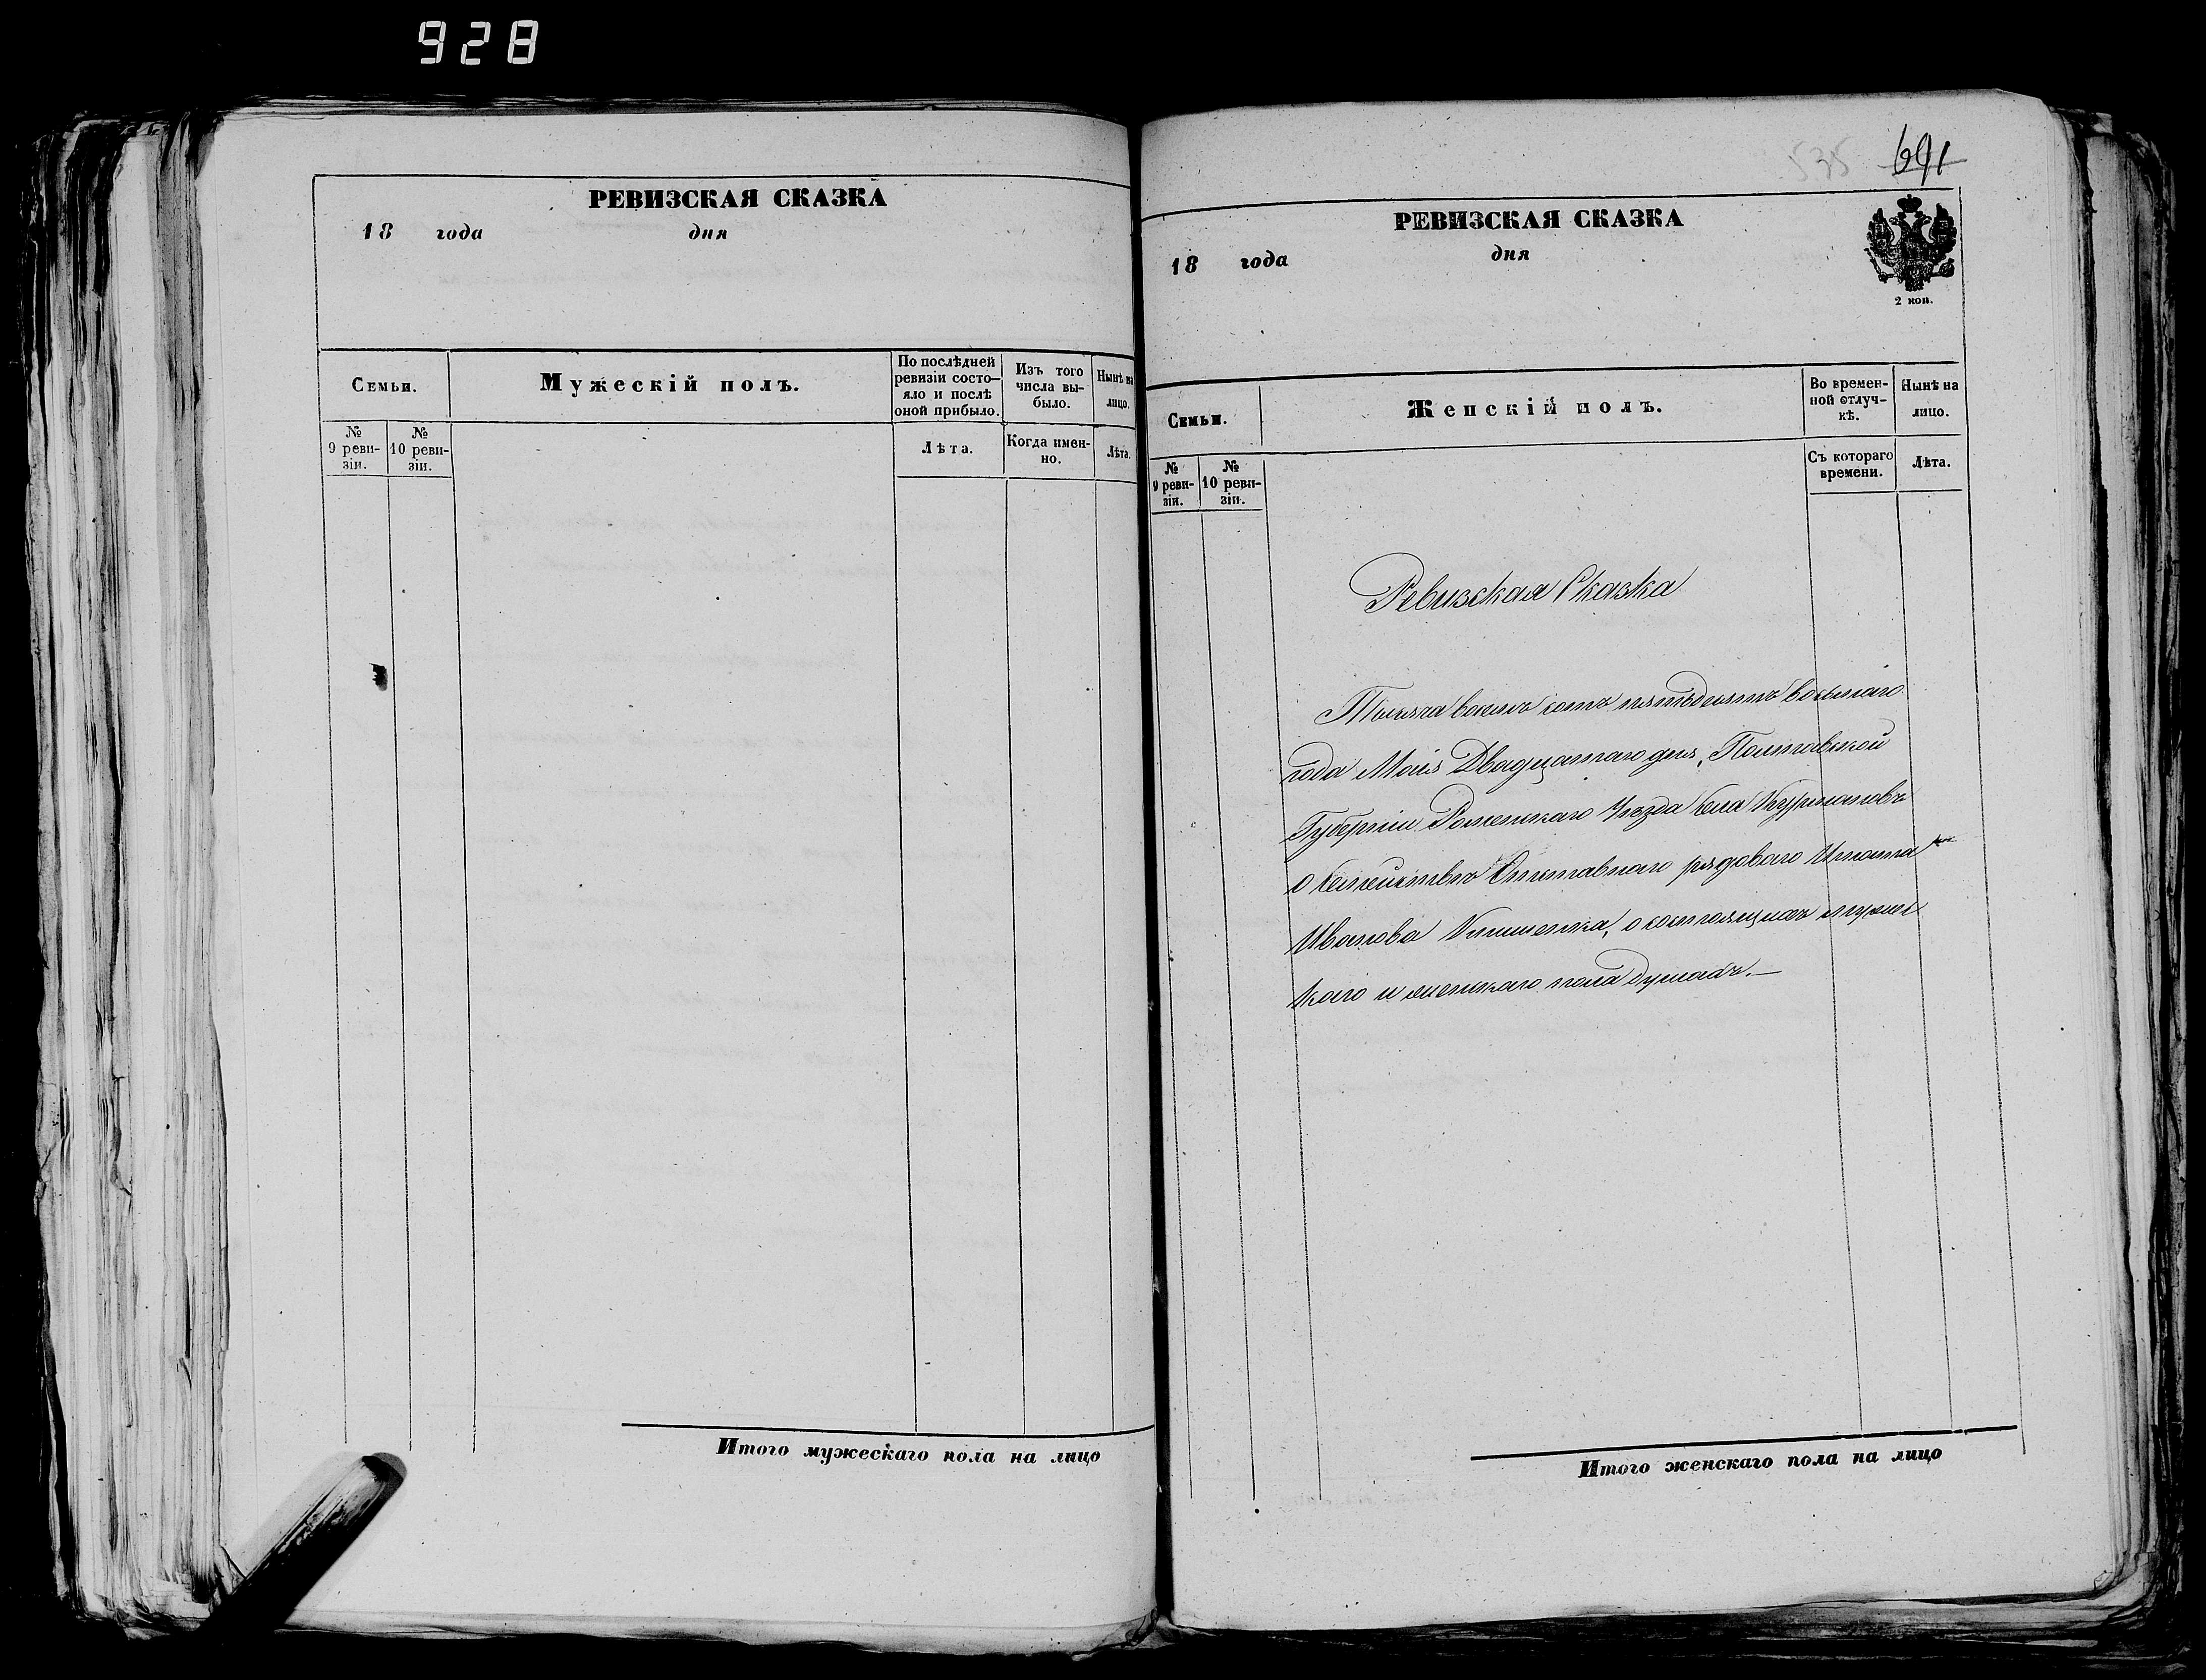 928
РЕВИЗСКАЯ СКАЗКА
18 года дня
Семьи.
Мужескій полъ.
По послѣдней ревизіи состо—яло и послѣ оной прибыло.
Изъ того числа вы-было.
Нынѣ на лицо.
№ 9 реви-зіи.
№ 10 реви-зіи.
Лѣта.
Когда имен-но.
Лѣта.
Итого мужескаго пола на лицо
535 691
РЕВИЗСКАЯ СКАЗКА
18 года дня
2 коп.
Семьи.
Женскій полъ.
Во времен-ной отлуч-кѣ.
Нынѣ на лицо.
№ 9 реви-зіи.
№ 10 реви-зіи.
Съ котораго времени.
Лѣта.
Ревизская Сказка
Тысяча восемь сотъ пятьдесятъ восьмаго
года Маія Двадцатаго дня, Полтавской
Губерніи Роменскаго Уѣзда села Курмановъ
о семействѣ Отставнаго рядоваго Игната
Иванова, о состоящихъ мужес
каго и женскаго пола душахъ.—
Итого женскаго пола на лицо